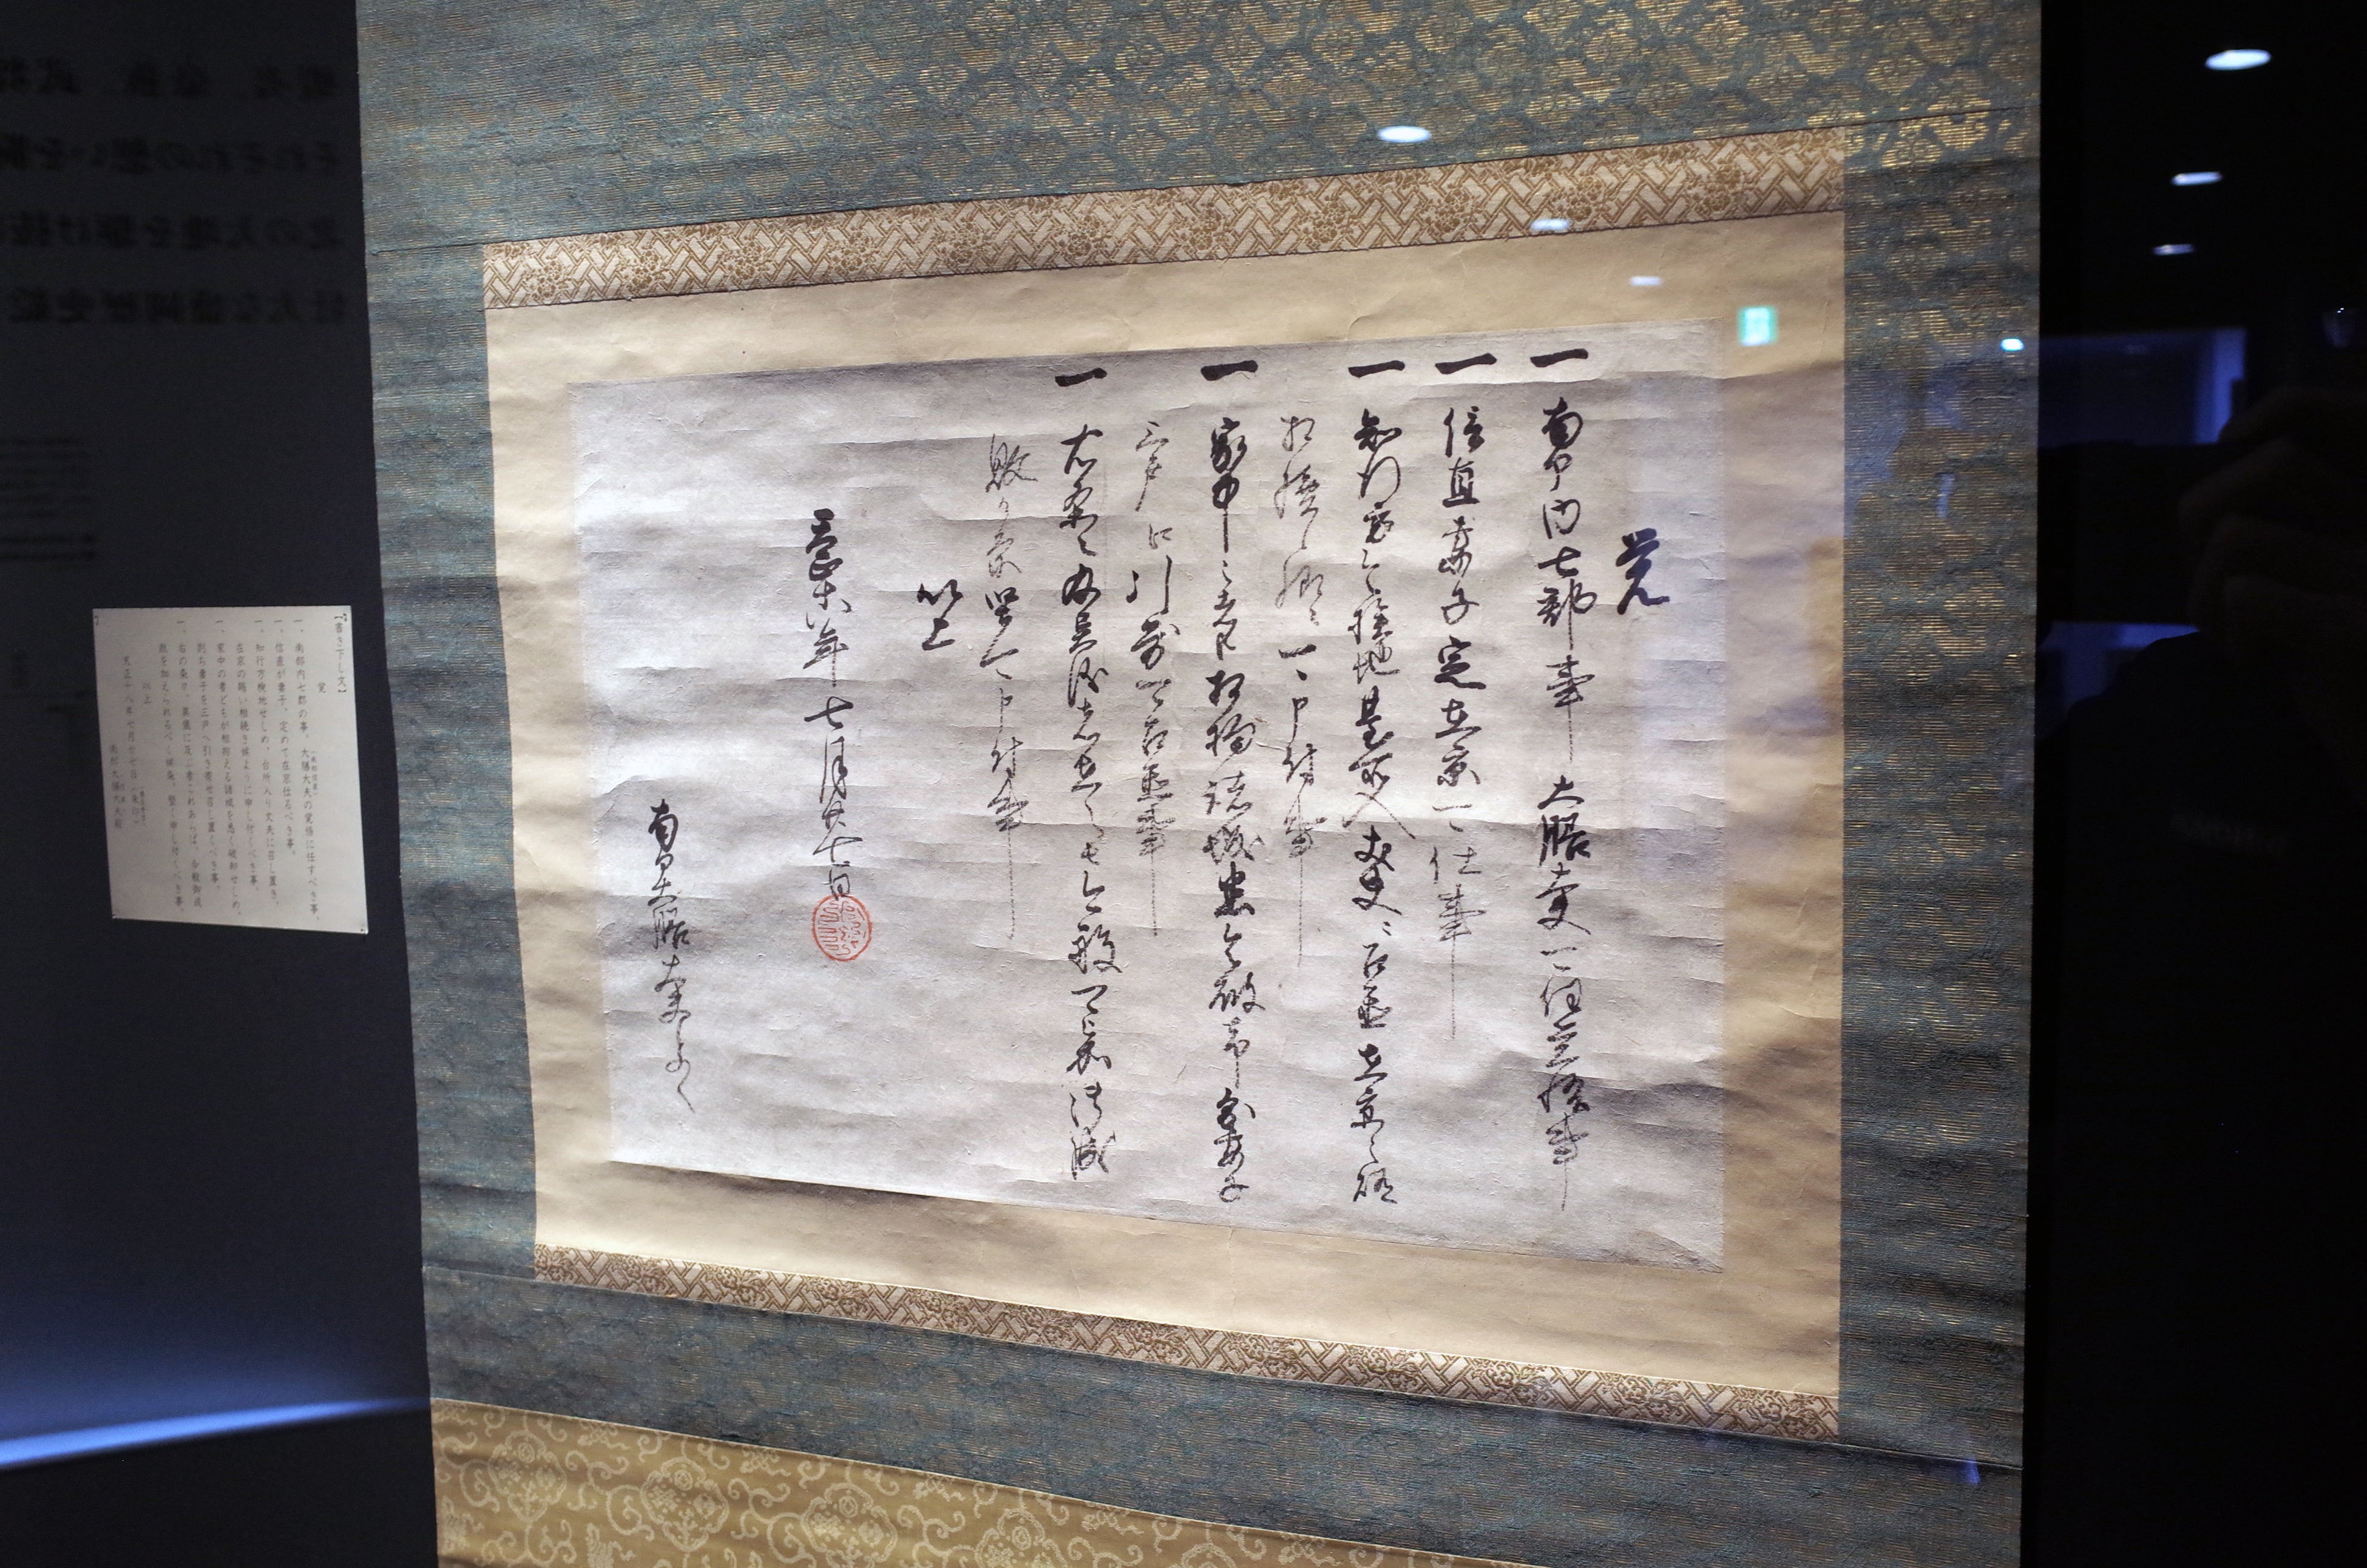 覚
一 南部内七郡事 大膳大夫可任覚悟事
一 信直妻子定在京可仕事
一 知行方令検地台所入丈夫ニ召置在京之賄
相続候様ニ可申付事
一 家中之者共相拘諸城悉令破却則妻子
三戸江引寄可召置事
一 右条々及異儀者在之者今般可被加御成
敗候条堅可申付事
以上
天正十八年七月廿七日
南部大膳大夫とのへ
【書き下し文】
覚
一、南部内七郡の事、大膳大夫の覚悟に任すべき事。
一、信直が妻子、定めて在京仕るべき事。
一、知行方検地せしめ、台所入り丈夫に召し置き、
在京の賄い相続き候ように申し付くべき事。
一、家中の者どもが相拘える諸城を悉く破却せしめ、
則ち妻子を三戸へ引き寄せ召し置くべき事。
一、右の条々、異儀に及ぶ者これあらば、今般御成
敗を加えらるべく候条、堅く申し付くべき事。
以上
天正十八年七月廿七日(朱印)
南部大膳大夫殿